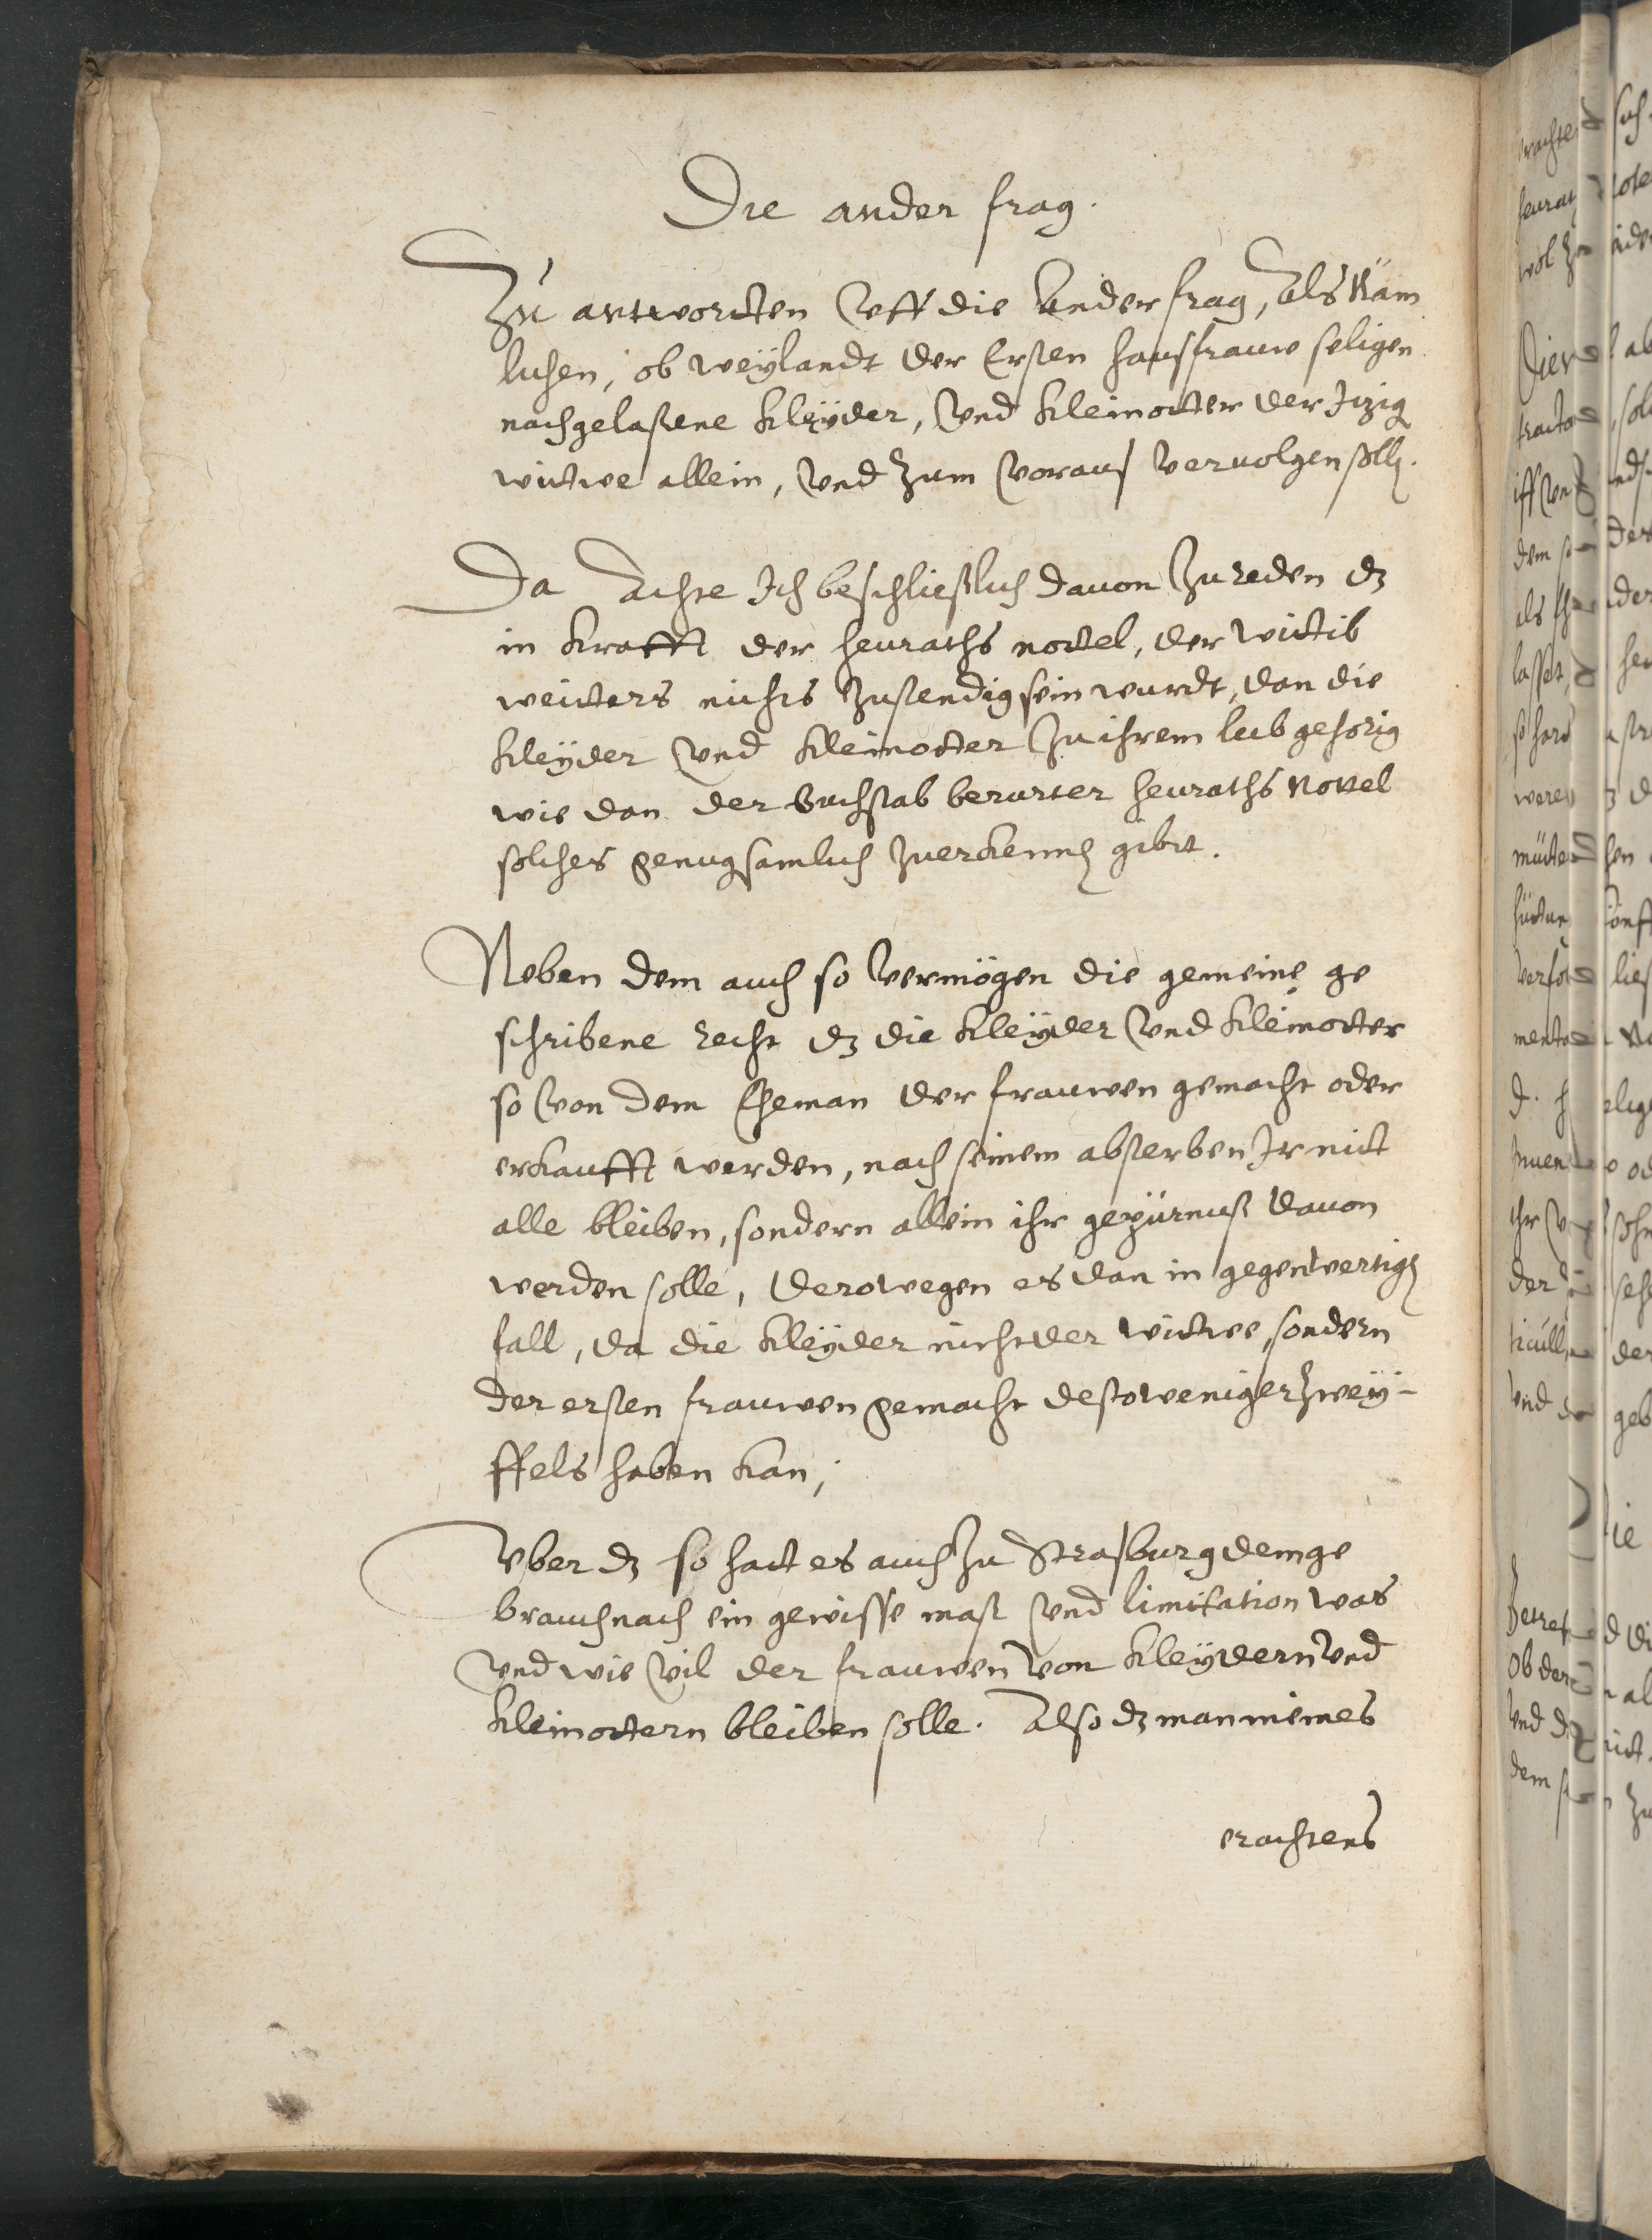 Die ander frag.
Zu antwortten vff die ander frag, als Näm
lichen, ob weylandt der Ersten hausfrauw seligen
nachgelaßene kleÿder, vnd kleinotter der Jtzig
wittwe allein, vnd zum voraus vervolgen soll.
Da Achte Jch beschließlich dauon zu reden dz
in krafft der heuraths nottel, der wittib
weitters nichts zustendig sein wurdt, dan die
kleÿder vnd kleinotter zu ihrem leib gehörig
wie dan der buchstab berurter heuraths Nottel
solches genugsamlich zuerkennen gibtt.
Neben dem auch so vermögen die gemeine ge
schribene recht dz die kleÿder vnd kleinotter
so von dem Eheman der frauwen gemacht oder
erkaufft werden, nach seinem absterben Jr nitt
alle bleiben, sondern allein ihr gepürnuß dauon
werden solle, derowegen es dan in gegenwertigen
fall, da die kleÿder nicht der wittwe, sondern
der ersten frauwen gemacht desto weniger zweÿ-
ffels haben kan,
Vber dz so hatt es auch zu Straßburg dem ge
brauch nach ein gewisse maß vnd limitation was
vnd wie vil der frauwen von kleÿdern vnd
kleinottern bleiben solle. Also dz man meines
erachtens